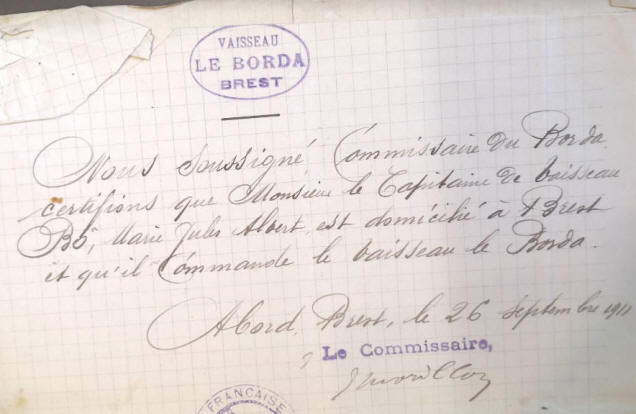 VAISSEAU
LE BORDA
BREST
Nous soussigné, Commissaire du Borda,
certifions que Monsieur le Capitaine de vaisseau
Bô, Marie Jules Albert, est domicilié à Brest
et qu'il Commande le vaisseau le Borda.
A bord, Brest, le 26 septembre 1911
Le Commissaire,
FRANÇAISE